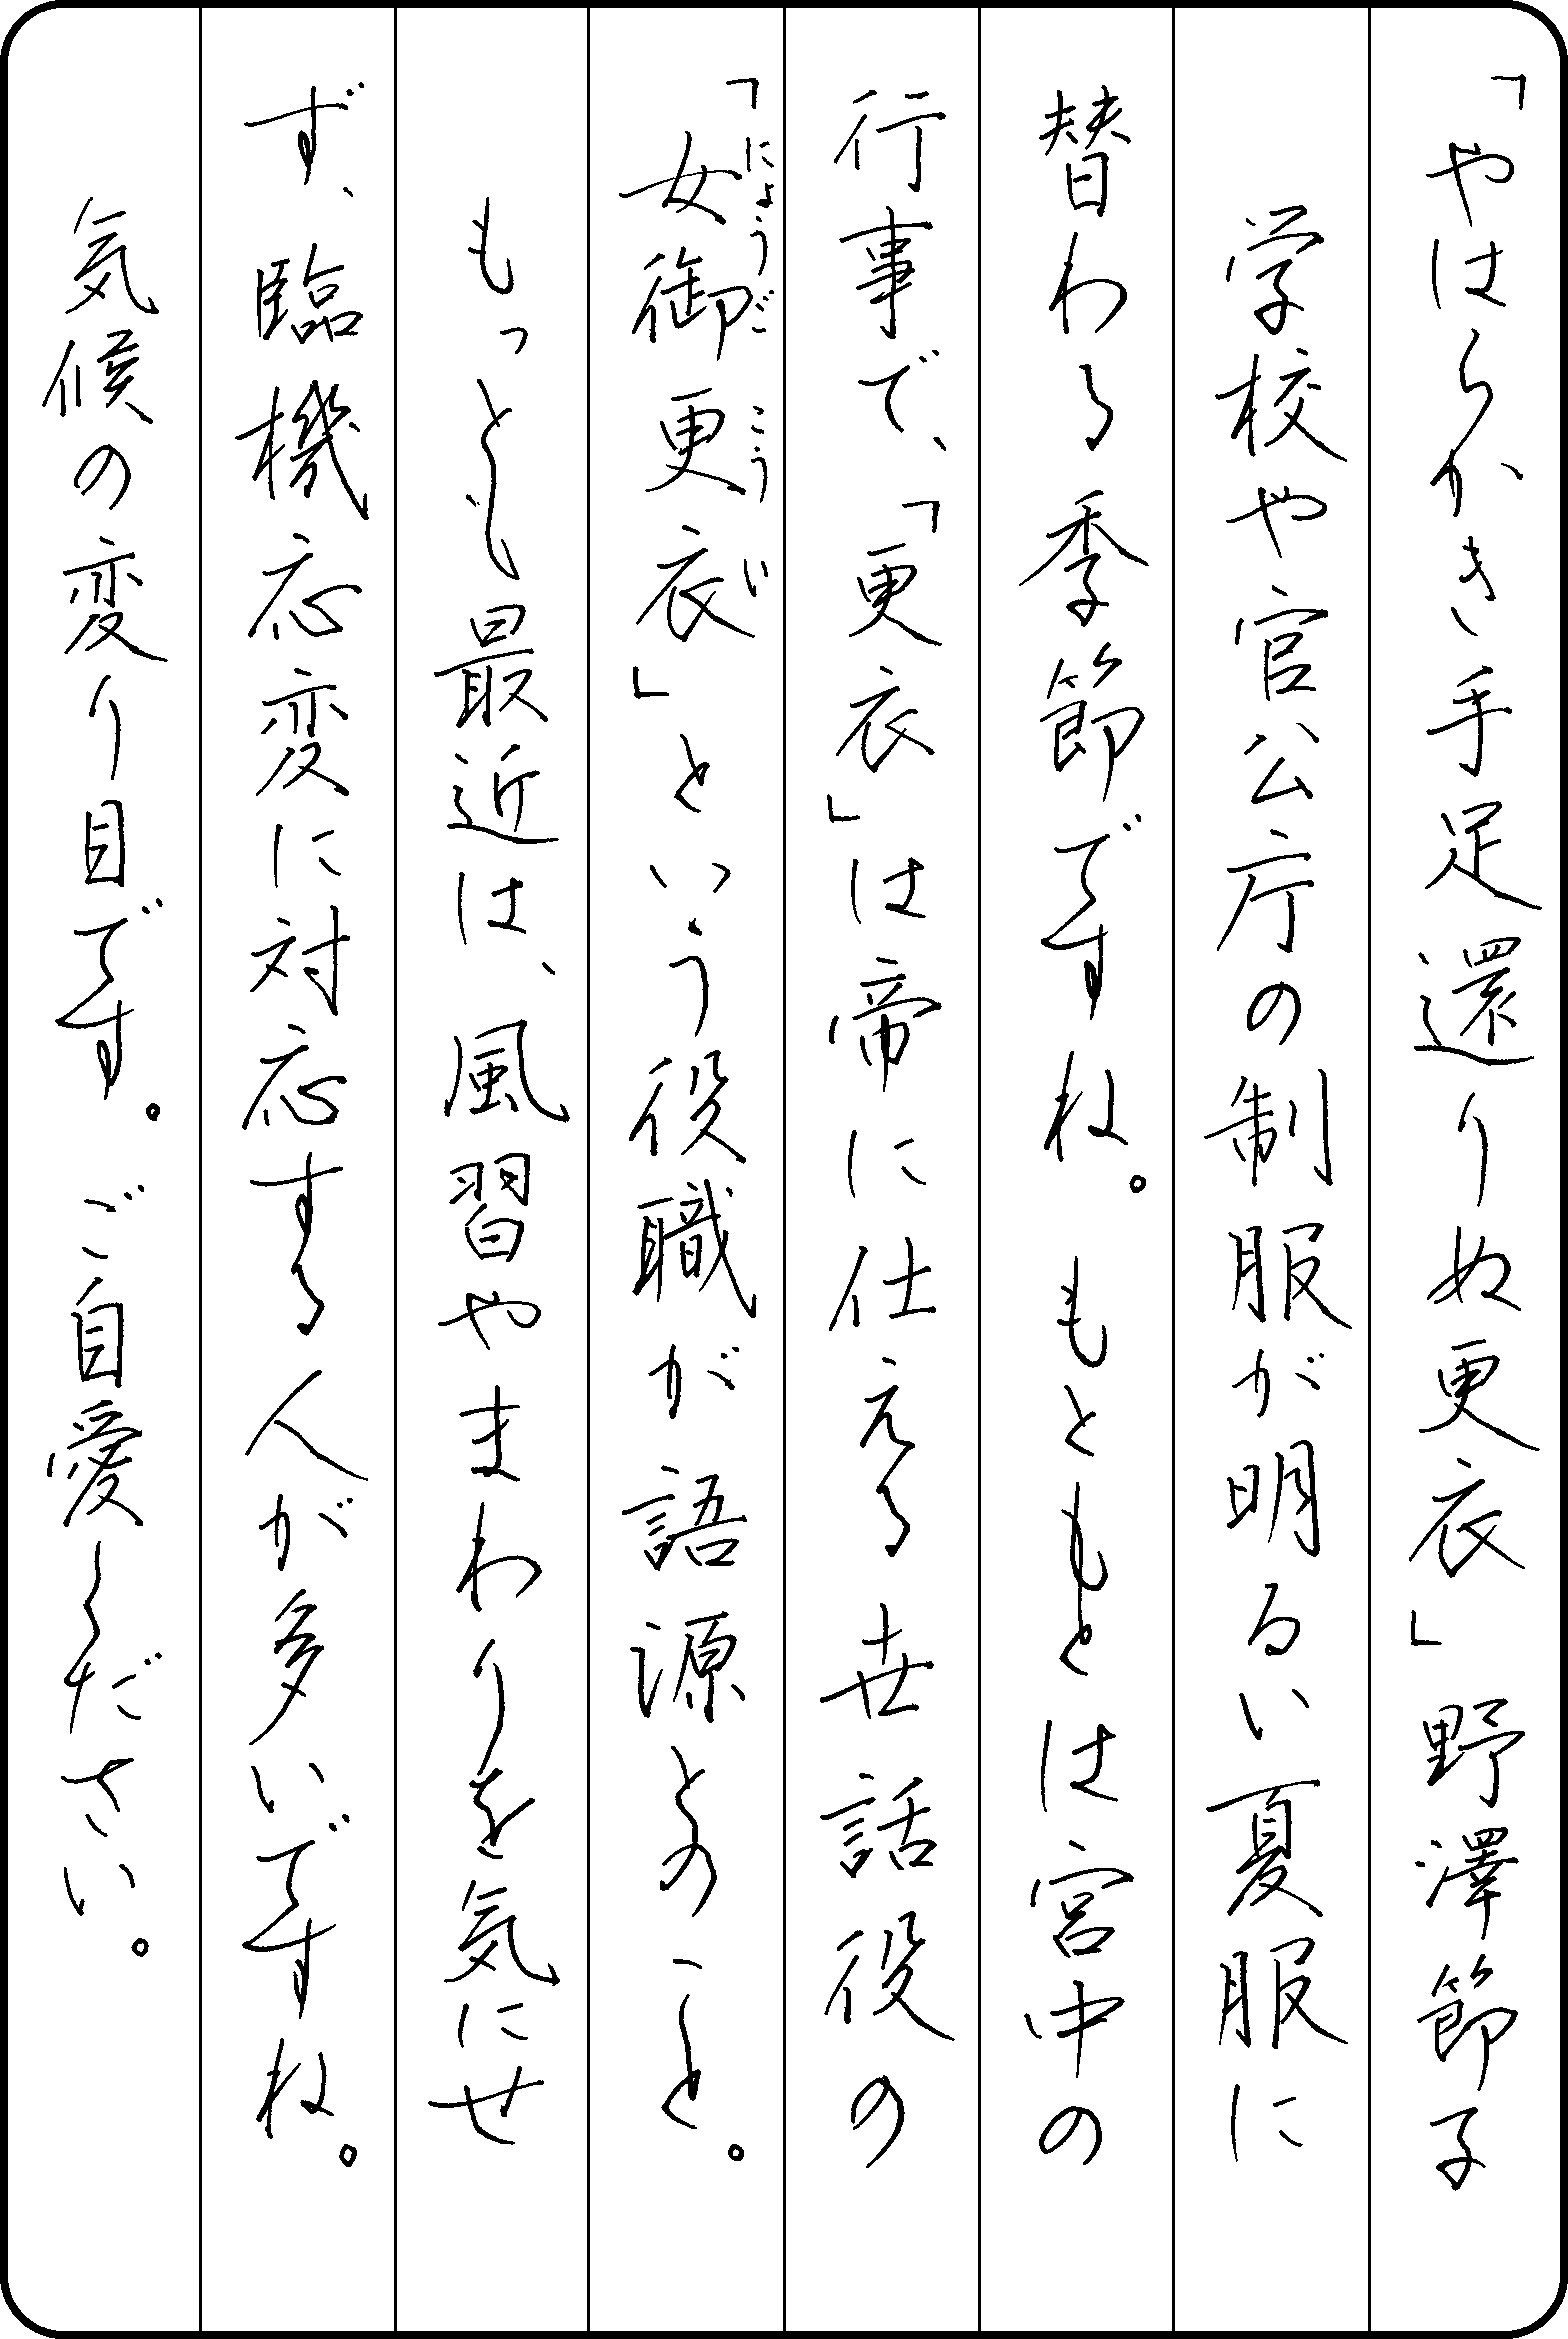 「やはらかき手足還りぬ更衣」野澤節子
学校や官公庁の制服が明るい夏服に
替わる季節ですね。もともとは宮中の
行事で、「更衣」は帝に仕える世話役の
「女御更衣」という役職が語源とのこと。
にょうごこうい
もっとも最近は、風習やまわりを気にせ
ず、臨機応変に対応する人が多いですね。
気候の変り目です。ご自愛ください。